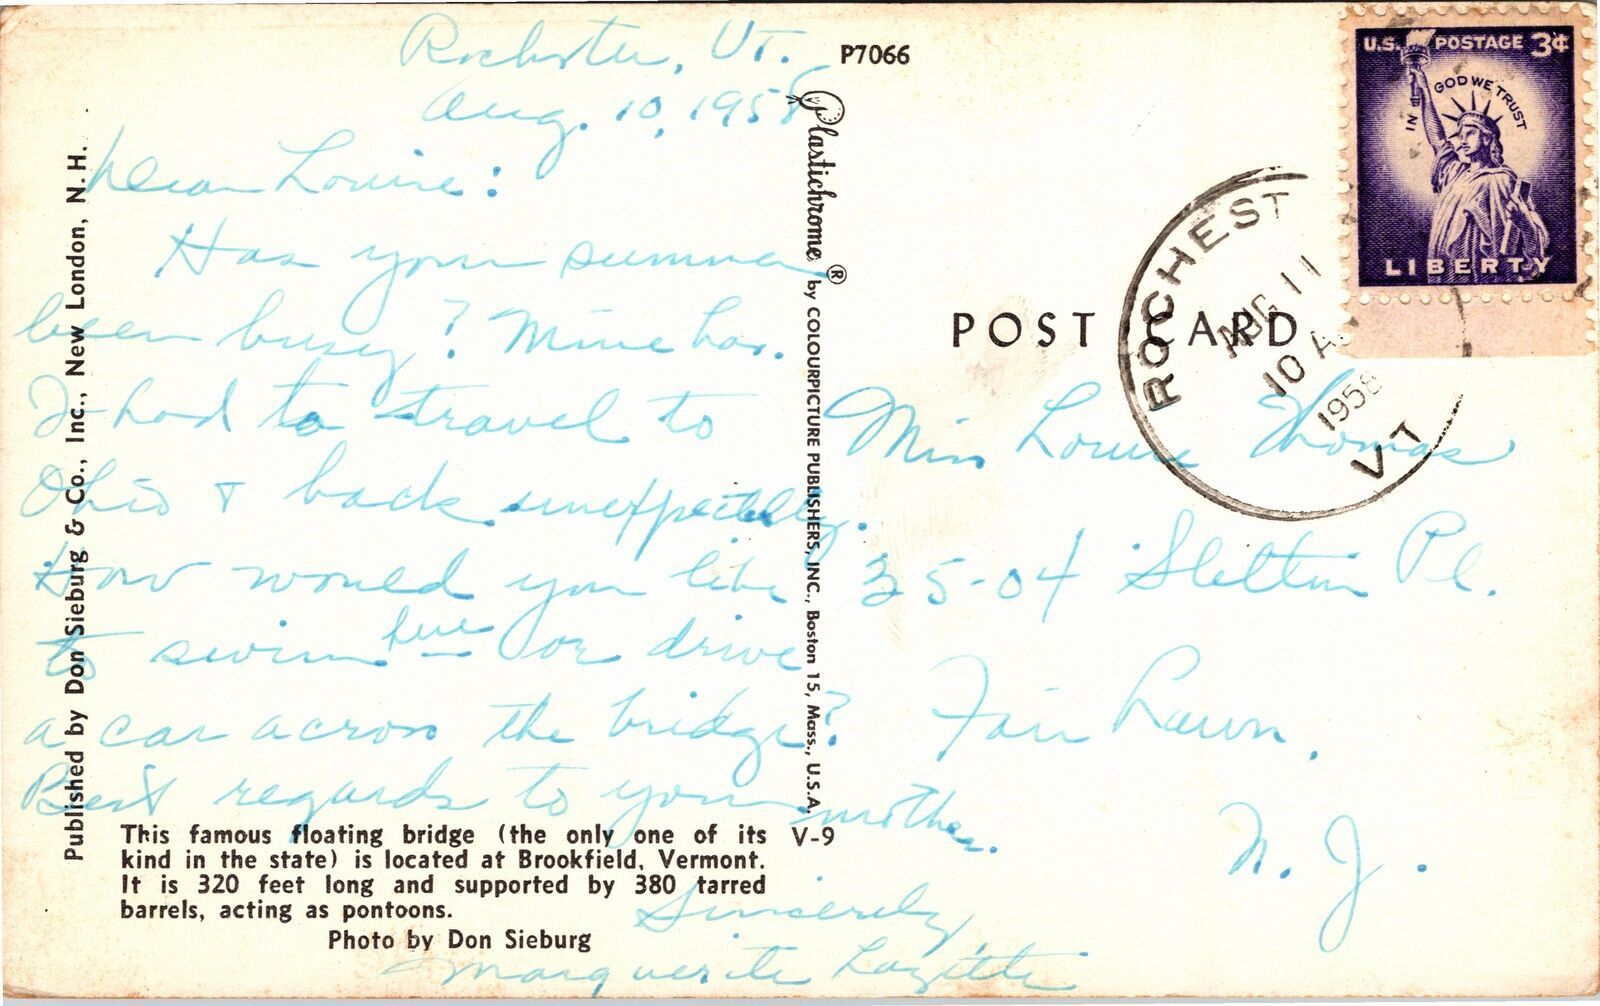 Rochester, Vt.
Aug. 10, 1958
Dear Louise:
Has your summer
been busy? Mine has.
I had to travel to
Ohio & back unexpectedly.
How would you like
to swim here — or drive
a car across the bridge?
Best regards to your mother.
Sincerely,
Marguerite
This famous floating bridge (the only one of its
kind in the state) is located at Brookfield, Vermont.
It is 320 feet long and supported by 380 tarred
barrels, acting as pontoons.
Photo by Don Sieburg
V-9
Published by Don Sieburg & Co., Inc., New London, N. H.
P7066
Plastichrome ® by COLOURPICTURE PUBLISHERS, INC., Boston 15, Mass., U.S.A.
POST CARD
U.S. POSTAGE 3¢
IN GOD WE TRUST
LIBERTY
ROCHEST
AUG 11
10 A
1958
VT
Miss Louise Thomas
35-04 Pl.
Fair Lawn,
N. J.